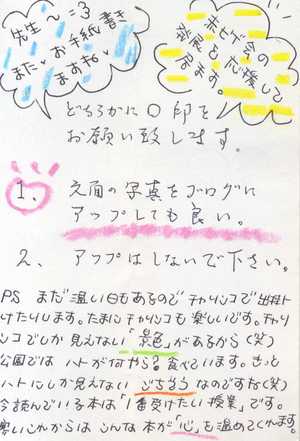 先生〜=3
また、お手紙書き
ますね
未とどの
発展を応援して
居ます。
どちらかに〇印を
お願い致します。
1、 文面の写真をブログに
アップしても良い。
2、 アップはしないで下さい。
PS まだ温い日もあるのでチャリンコで出掛
けたりします。たまにチャリンコも楽しいです。チャリ
ンコでしか見えない「景色」があるから(笑)
公園ではハトが何やら?食べています。きっと
ハトにしか見えないごちそうなのですね(笑)
今読んでいる本は「1番受けたい授業」です。
寒いこれからはこんな本が「心」を温めてくれます。